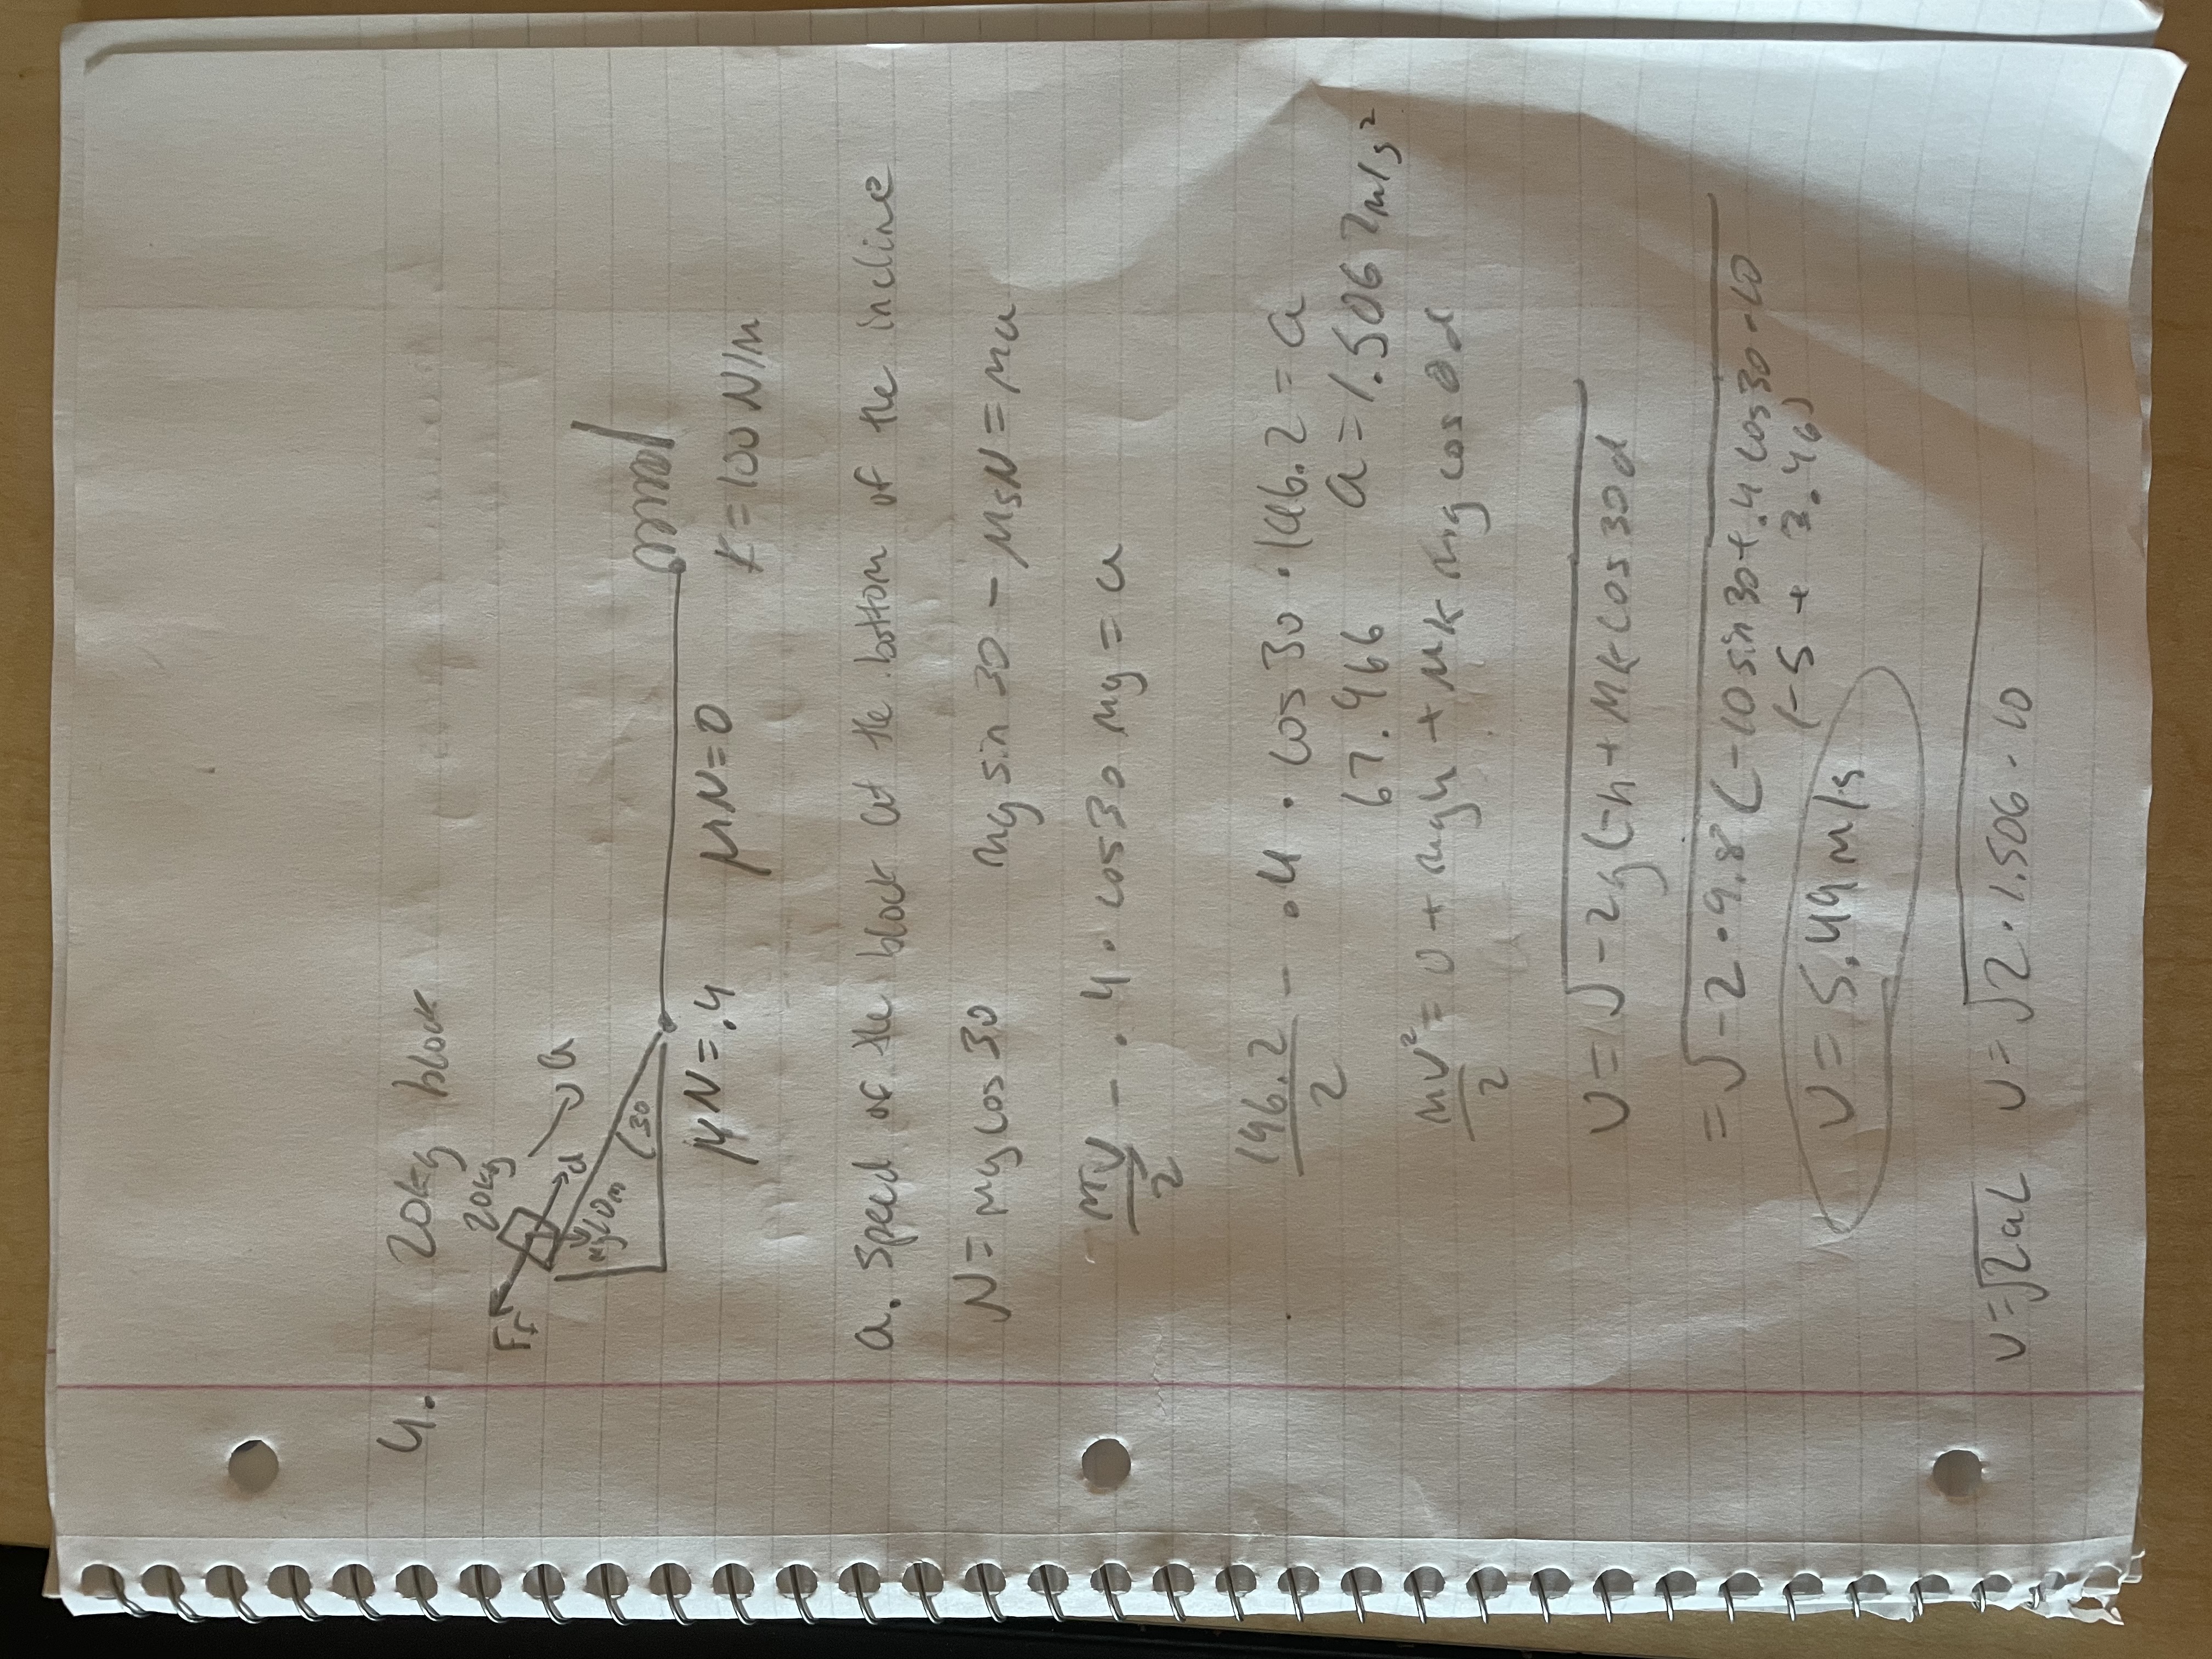 4. 20kg block
20kg
Ff
d
a
mg
10m
30
μN=.4 μN=0 K=100N/m
a. Speed of the block at the bottom of the incline
N=mg cos30 mg sin 30 - μsN=ma
- .4·cos30 mg=a
2
196.2/2 - .4·cos30·196.2=a
67.966 a=1.5067m/s²
mv²/2=0+mgh+μk mg cosθd
v=√-2g(-h+μk cos30d
=√-2·9.8(-10sin30+.4cos30·10
(-5 + 3.46)
v=5.49m/s
v=√2aL v=√2·1.506·10